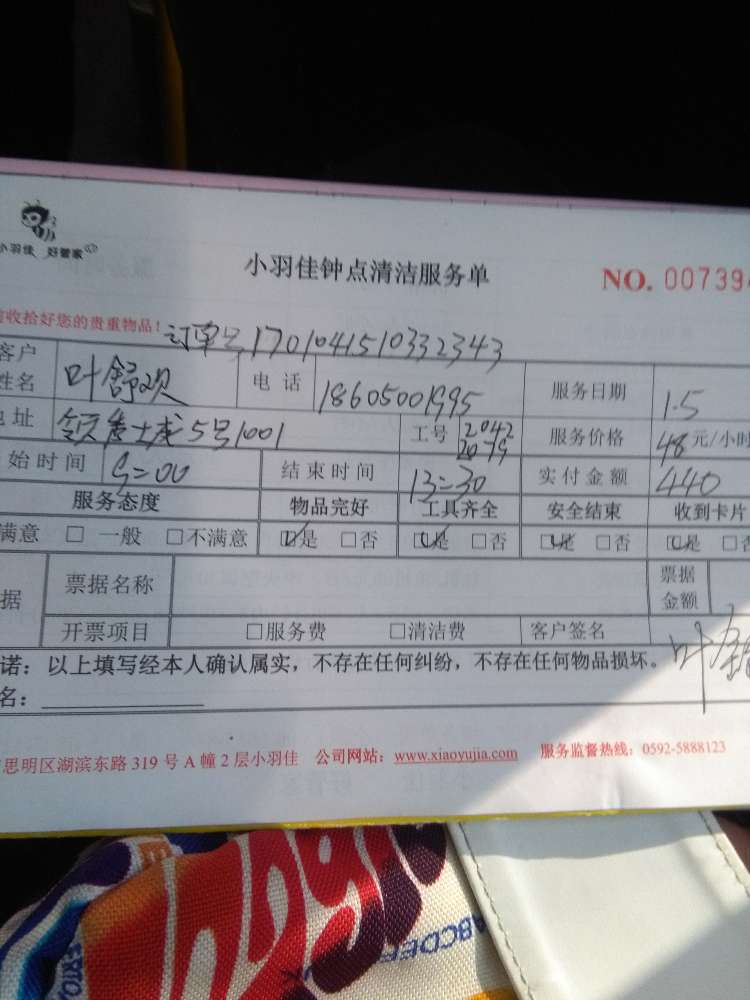 小羽佳 好管家
小羽佳钟点清洁服务单 NO. 00739
收拾好您的贵重物品! 订单号1701041510332343
客户姓名 叶舒欢 电话 18605001995 服务日期 1.5
地址 5号1001 工号 2042 2075 服务价格 48元/小时
始时间 9=00 结束时间 13=30 实付金额 440
服务态度 物品完好 工具齐全 安全结束 收到卡片
满意 □ 一般 □不满意 ☑是 □否 ☑是 □否 ☑是 □否 ☑是 □否
据 票据名称 票据金额
开票项目 □服务费 □清洁费 客户签名 叶舒
诺:以上填写经本人确认属实,不存在任何纠纷,不存在任何物品损坏。
名:
思明区湖滨东路 319 号 A 幢 2 层小羽佳 公司网站:www.xiaoyujia.com 服务监督热线:0592-5888123
ABCDEF